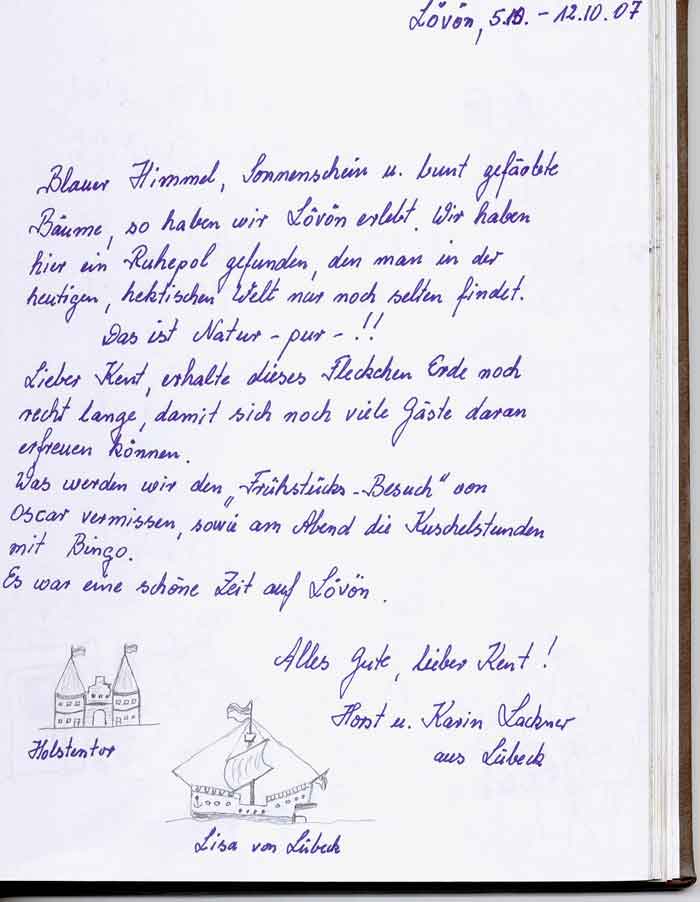 Lövön, 5.10. - 12.10.07
Blauer Himmel, Sonnenschein u. bunt gefärbte
Bäume, so haben wir Lövön erlebt. Wir haben
hier ein Ruhepol gefunden, den man in der
heutigen, hektischen Welt nur noch selten findet.
Das ist Natur - pur - !!
Lieber Kent, erhalte dieses Fleckchen Erde noch
recht lange, damit sich noch viele Gäste daran
erfreuen können.
Was werden wir den „Frühstücks-Besuch" von
Oscar vermissen, sowie am Abend die Kuschelstunden
mit Bingo.
Es war eine schöne Zeit auf Lövön.
Alles Gute, lieber Kent!
Horst u. Karin Lackner
aus Lübeck
Holstentor
Lisa von Lübeck